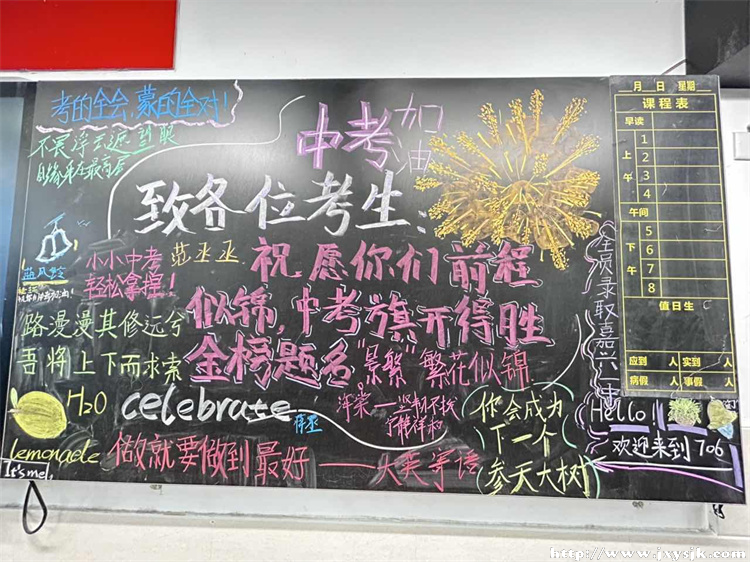 考的全会 蒙的全对!
不畏浮云遮望眼
自缘身在最高层
中考
加油
致各位考生:
小小中考
轻松拿捏!
范丞丞
祝愿你们前程
似锦,中考旗开得胜
金榜题名"景繁"繁花似锦
蓝风铃
路漫漫其修远兮
吾将上下而求索
H2O
celebrate
你会成为
下一个
参天大树
Lemonade
It's me.
做就要做到最好——大奕寄语
全员录取嘉兴一中
Hello!
欢迎来到706
月 日 星期
课程表
早读
上午
1
2
3
4
午间
下午
5
6
7
8
值日生
应到 人 实到 人
病假 人 事假 人
http://www.jxysjk.com